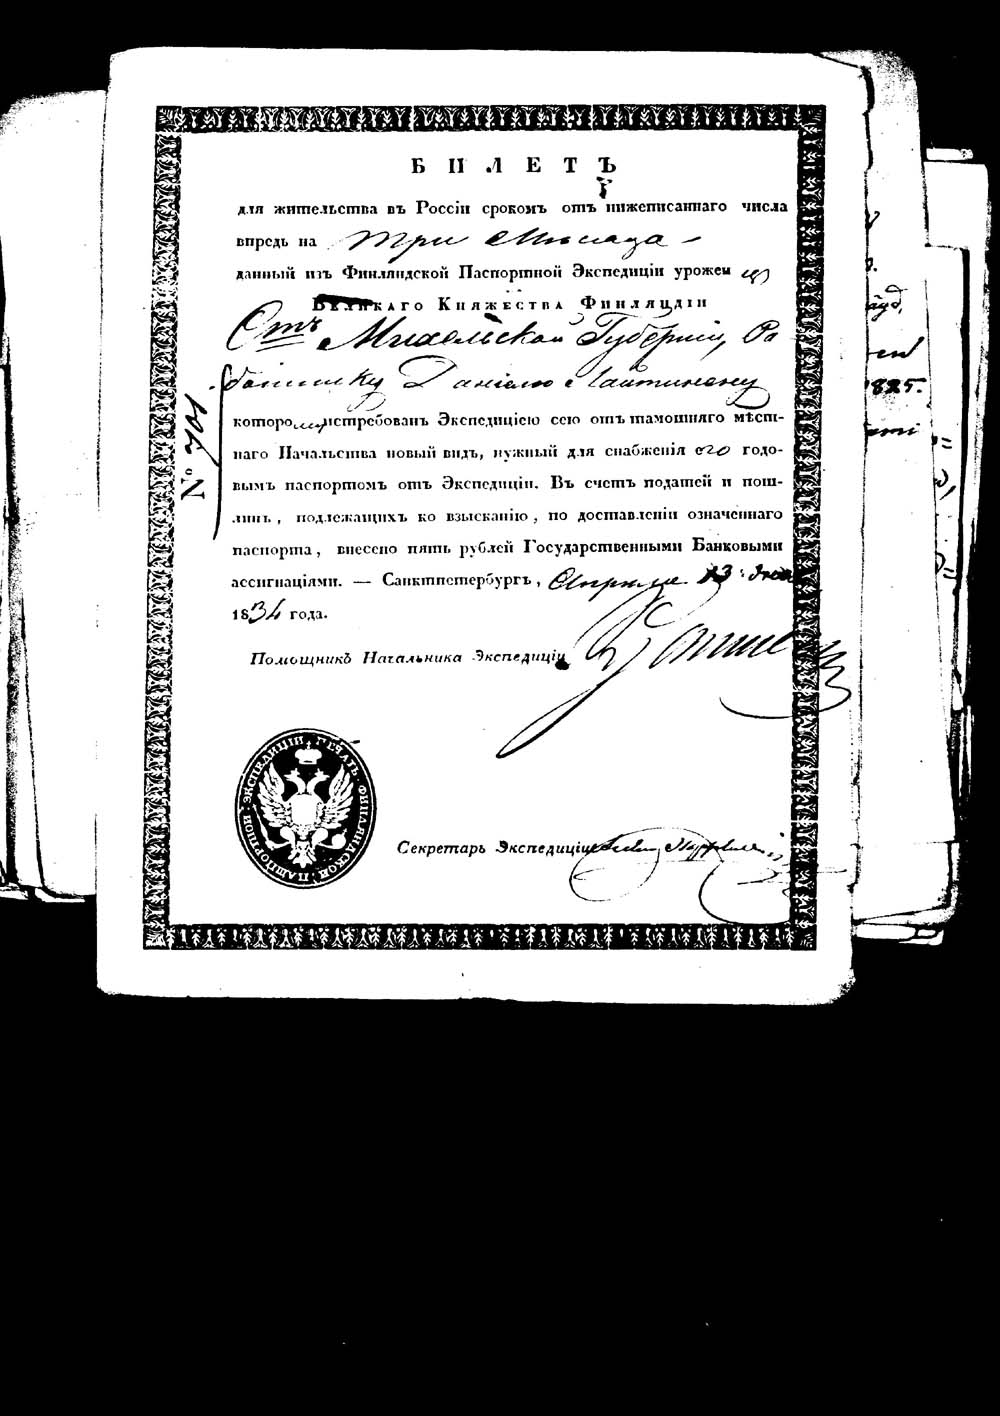 БИЛЕТЪ
для жительства въ Россіи срокомъ отъ нижеписаннаго числа
впредь на три мѣсяца
данный изъ Финляндской Паспортной Экспедиціи урожен цу
Великаго Княжества Финляндіи
Отъ Михельской Губерніи, Ра
ботнику Даніелю Лайтинену
которому истребованъ Экспедиціею сею отъ тамошняго мѣст-
наго Начальства новый видъ, нужный для снабженія его годо-
вымъ паспортомъ отъ Экспедиціи. Въ счетъ податей и пош-
линъ, подлежащихъ ко взысканію, по доставленіи означеннаго
паспорта, внесено пять рублей Государственными Банковыми
ассигнаціями. — Санктпетербургъ, Апрѣля 13 дня
1834 года.
Помощникъ Начальника Экспедиціи
Секретарь Экспедиціи
№ 701
ПЕЧАТЬ ФИНЛЯНДСКОЙ ПАШПОРТНОЙ ЭКСПЕДИЦІИ
1825.